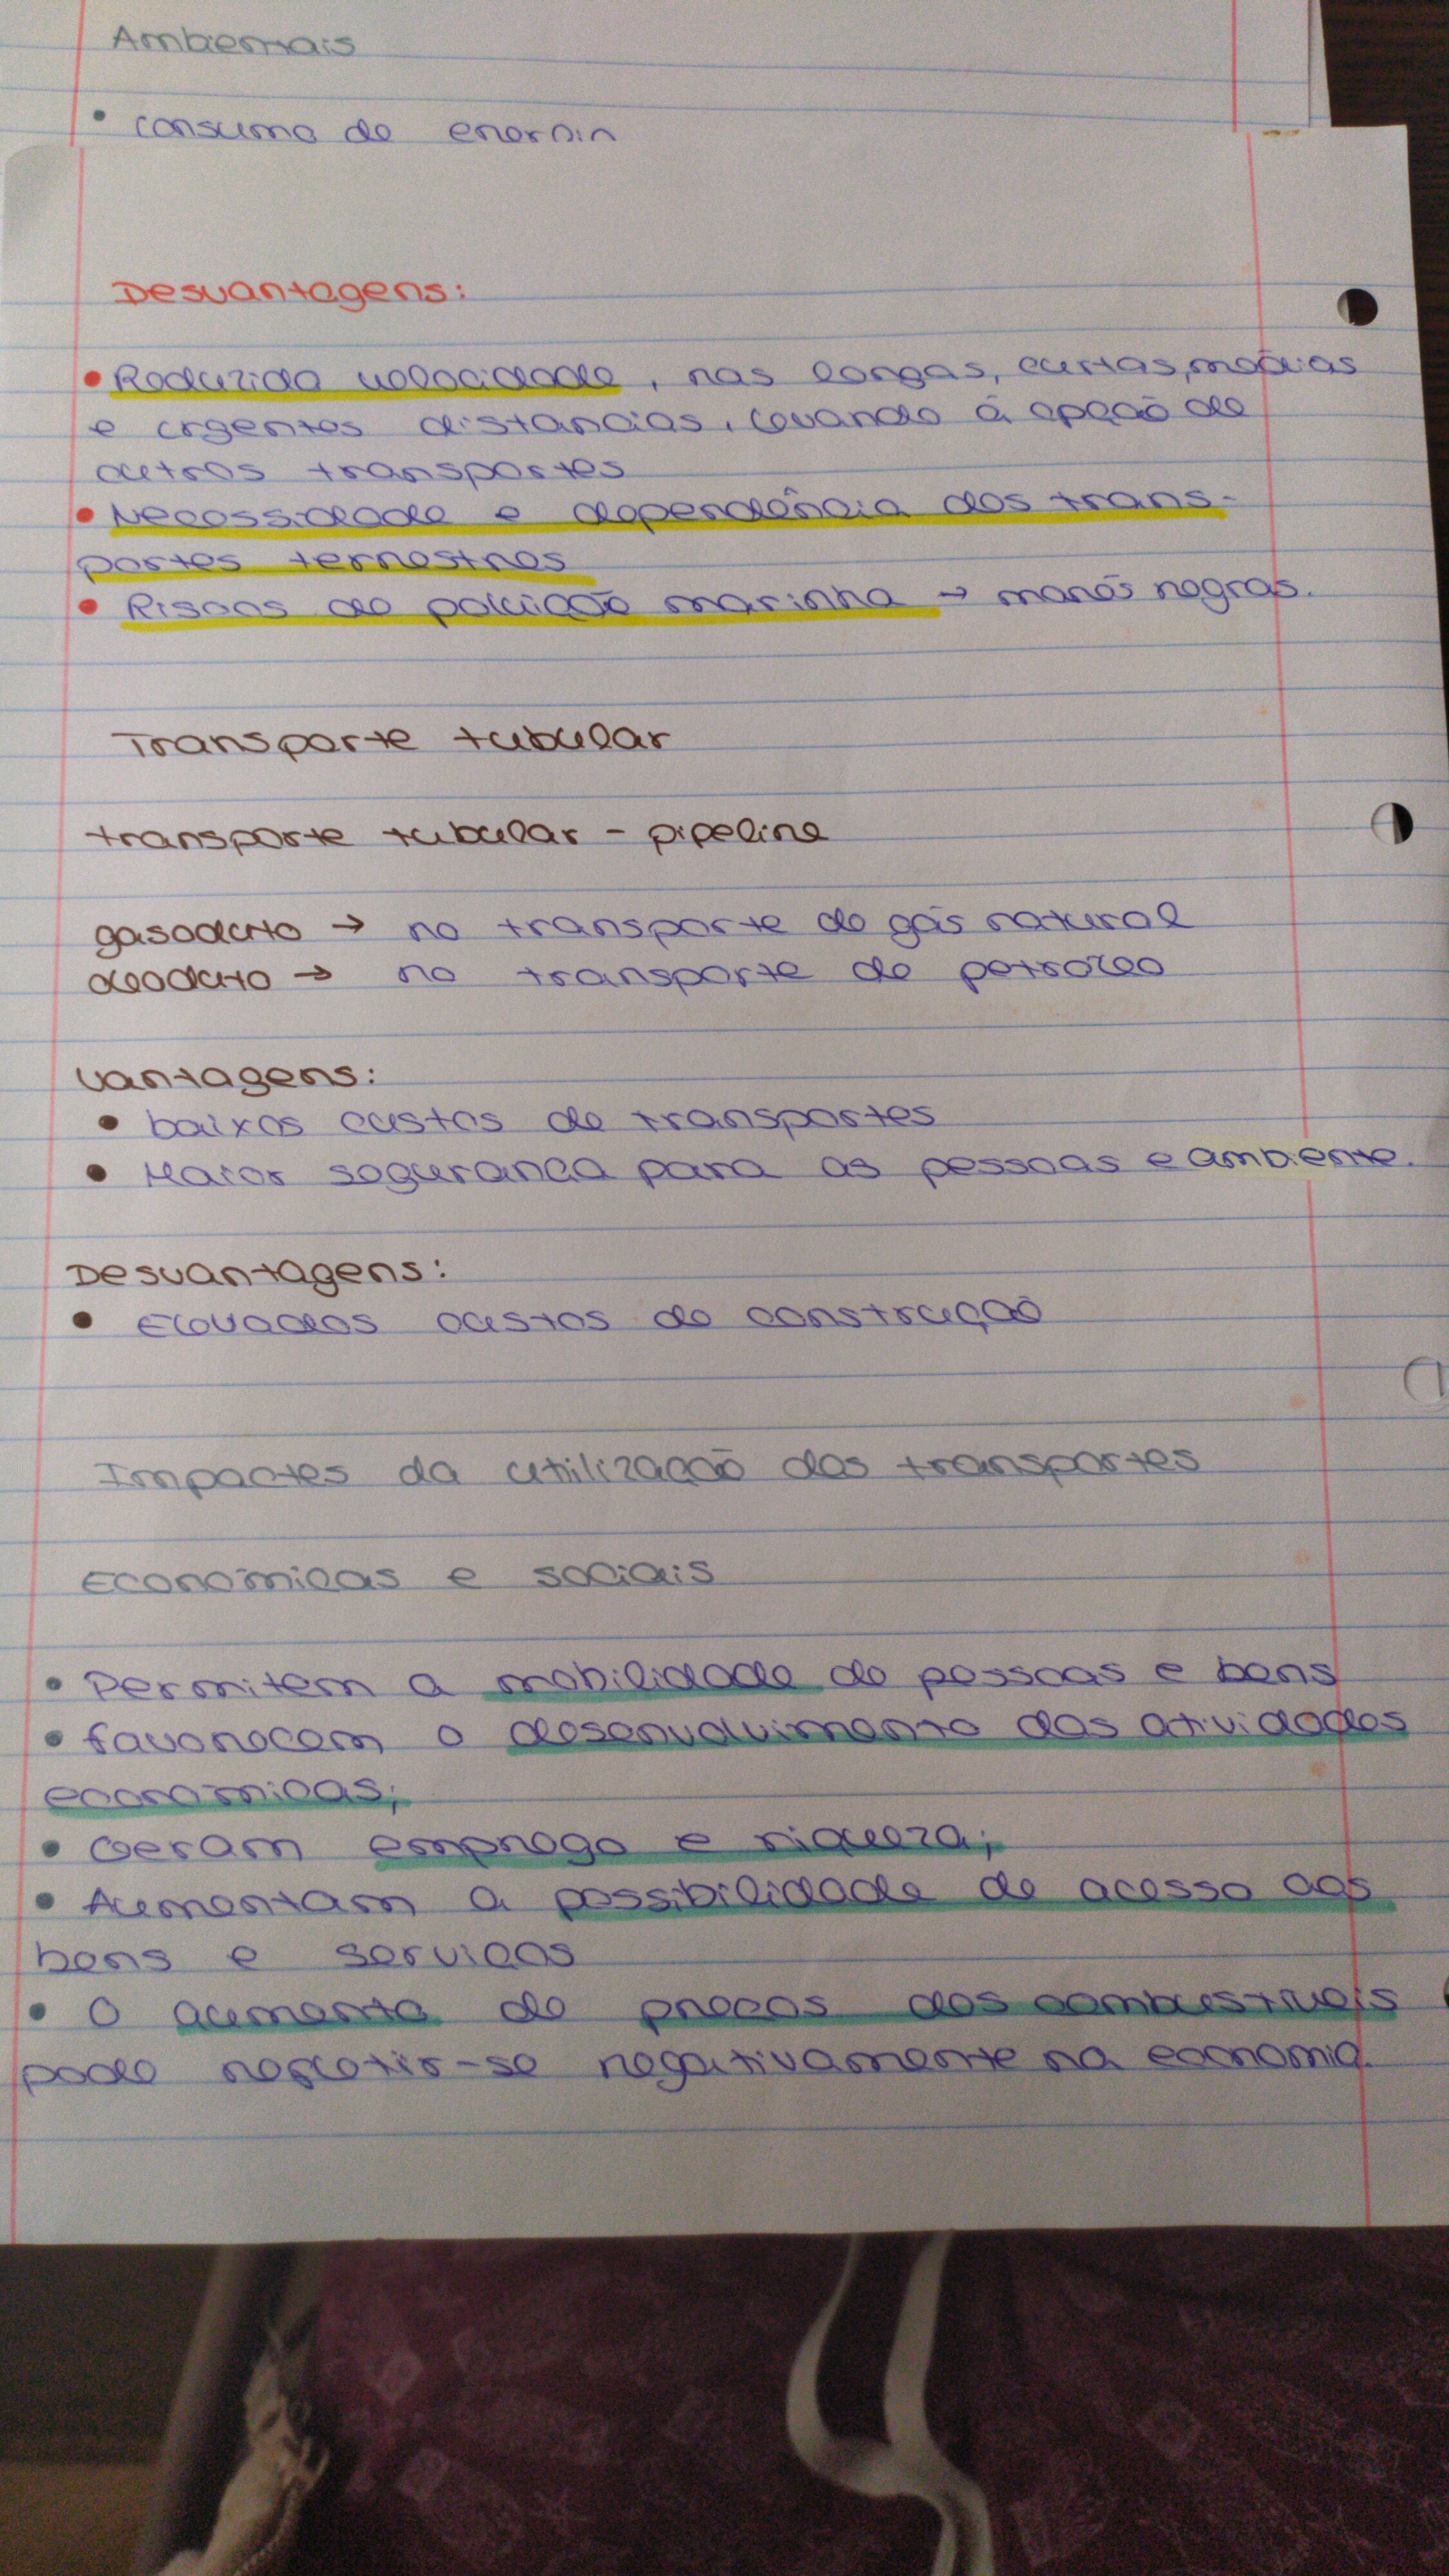 Ambientais
• consumo de energia
Desvantagens:
• Reduzida velocidade, nas longas, curtas, médias
e urgentes distancias, levando á opção de
outros transportes
• Necessidade e dependência dos trans-
portes terrestres
• Riscos de poluição marinha → marés negras.
Transporte tubular
transporte tubular - pipeline
gasoduto → no transporte de gás natural
oleoduto → no transporte de petroleo
Vantagens:
• baixos custos de transportes
• Maior segurança para as pessoas e ambiente.
Desvantagens:
• Elevados custos de construção
Impactes da utilização dos transportes
Económicas e sociais
• Permitem a mobilidade de pessoas e bens
• favorecem o desenvolvimento das atividades
económicas;
• Geram emprego e riqueza;
• Aumentam a possibilidade de acesso aos
bens e serviços
• O aumento de preços dos combustiveis
pode refletir-se negativamente na economia.